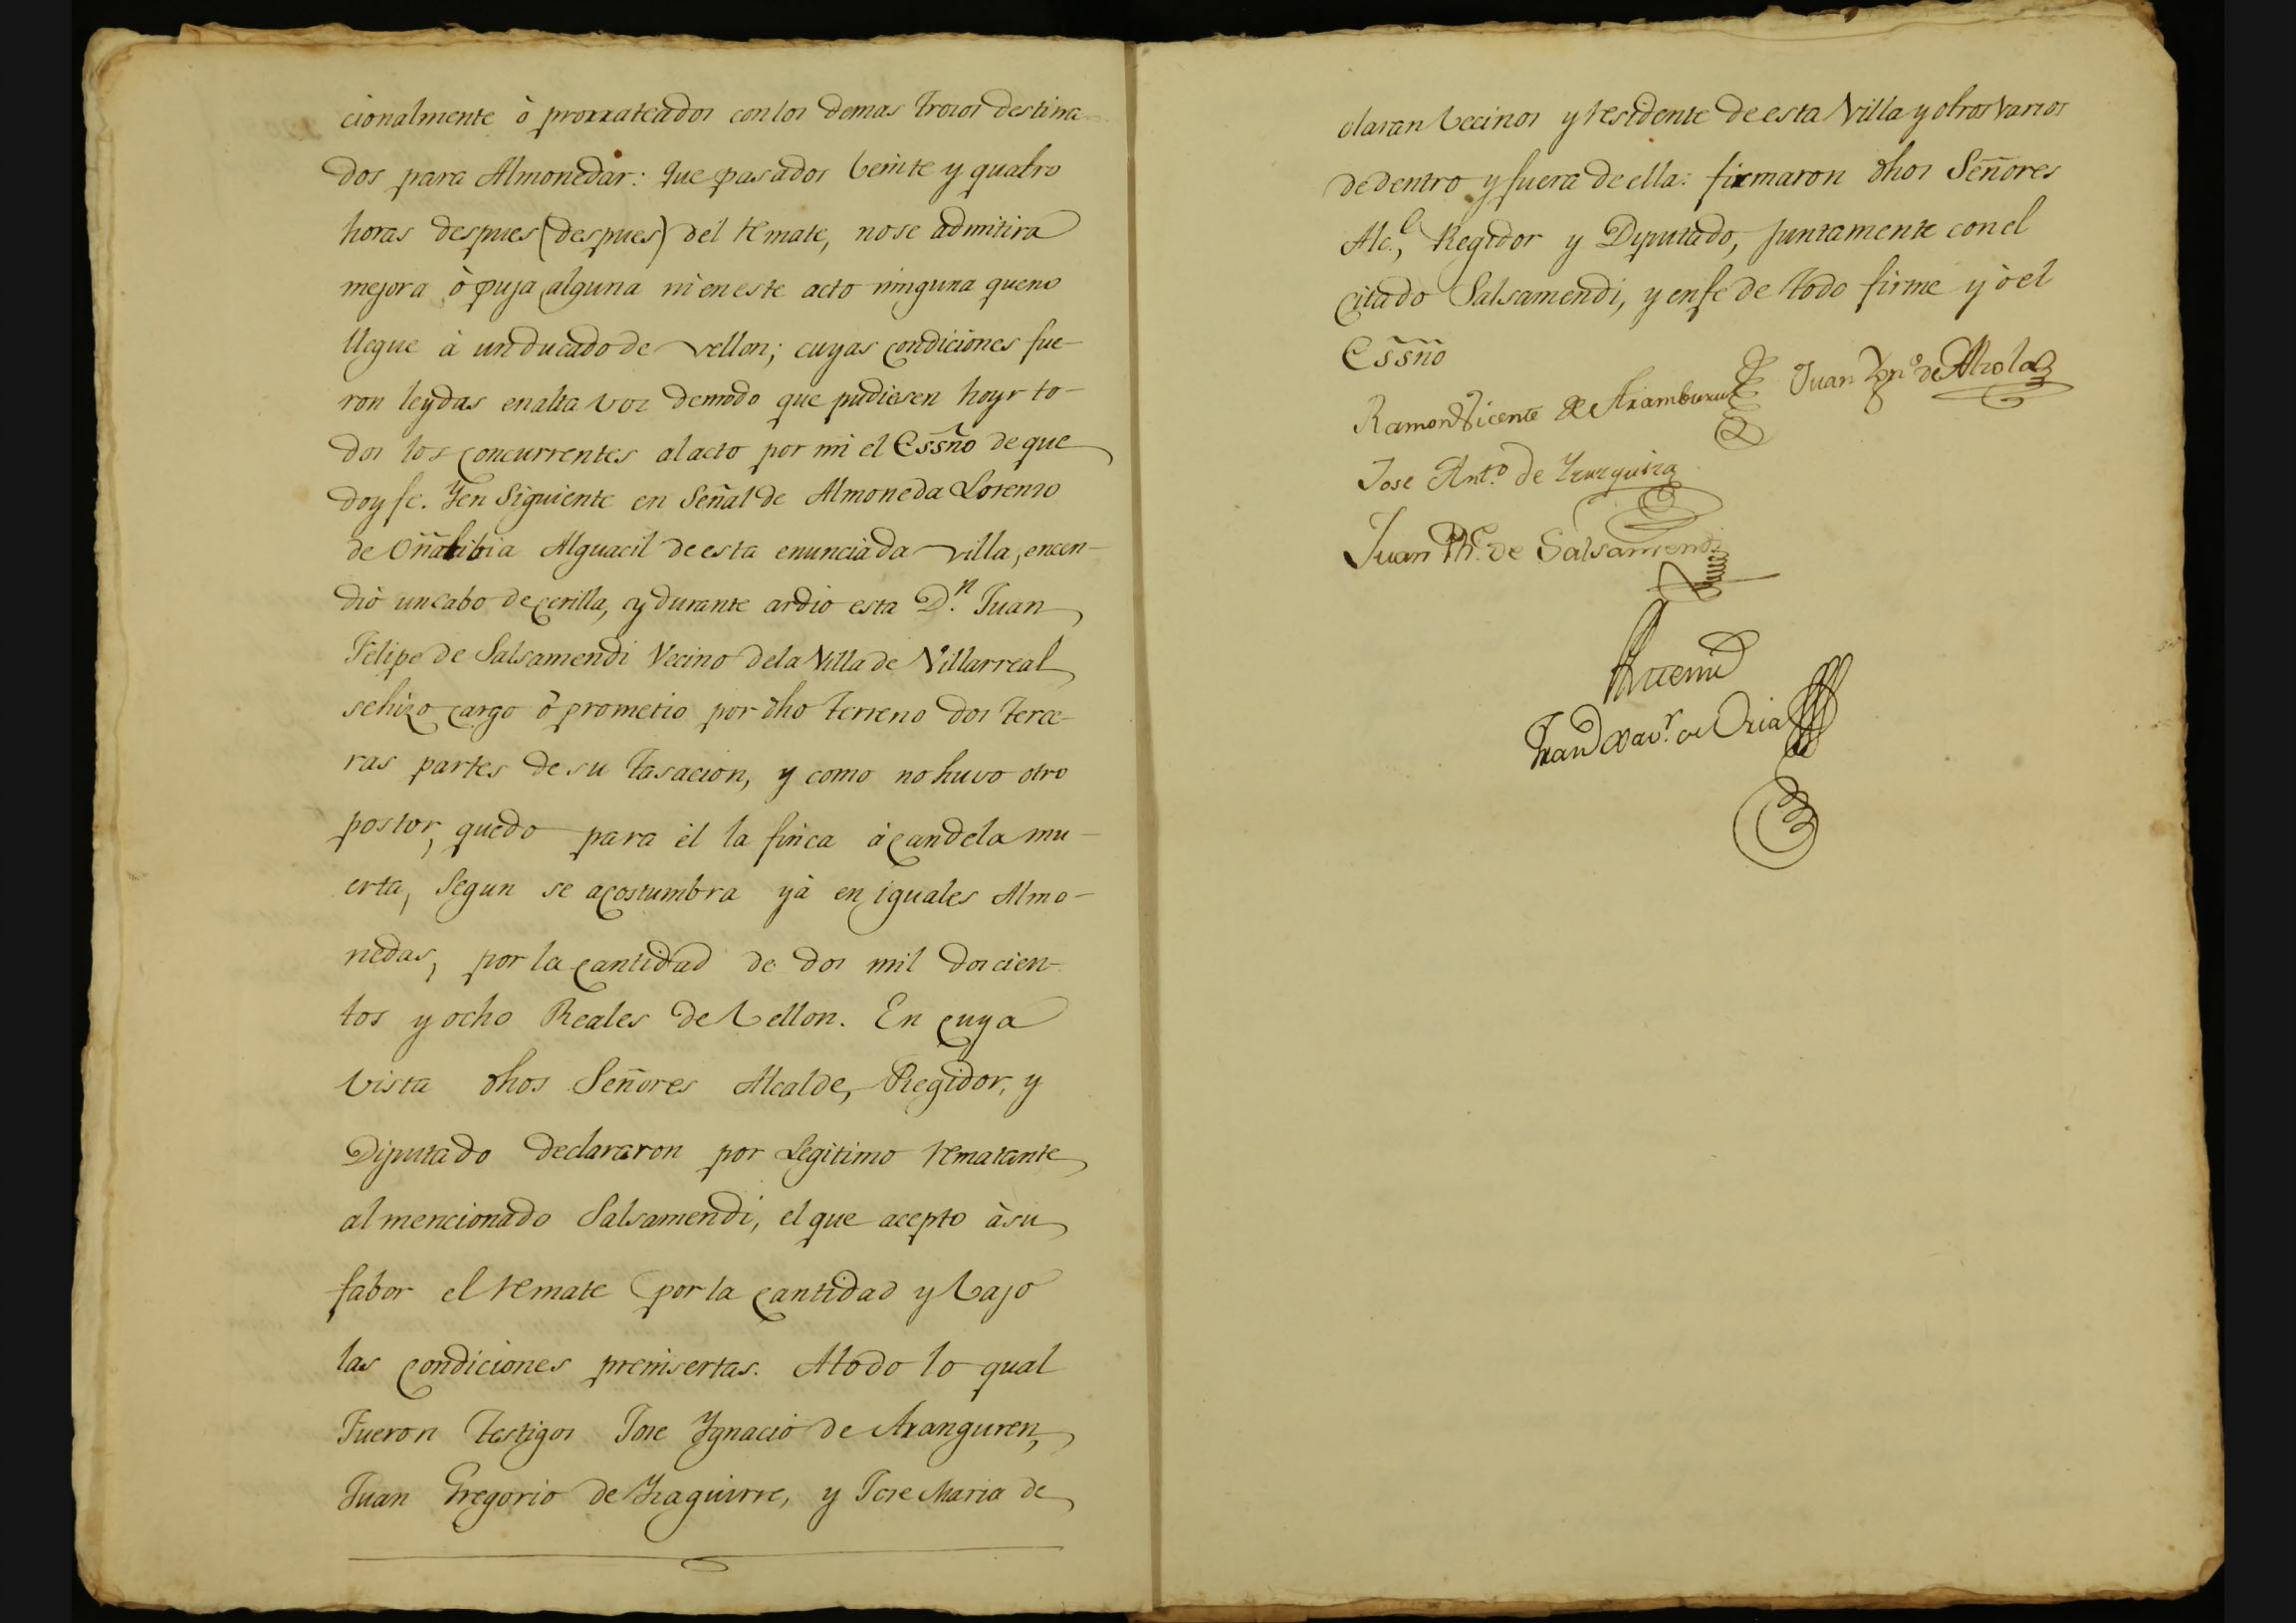 cionalmente ò prorrateados con los demas trozos destina-
dos para Almonedar: que pasados beinte y quatro
horas despues (despues) del remate, no se admitira
mejora ò puja alguna ni en este acto ninguna que no
llegue à un ducado de vellon; cuyas condiciones fue-
ron leydas en alta voz de modo que pudiesen hoyr to-
dos los concurrentes al acto por mi el Essño de que
doy fe. Y en Siguiente en Señal de Almoneda Lorenzo
de Oñatibia Alguacil de esta enunciada villa, encen-
diò un cabo de cerilla, y durante ardio esta D.n Juan
Felipe de Salsamendi Vecino de la Villa de Villarreal
se hizo cargo ò prometio por dho terreno dos terce-
ras partes de su tasacion, y como no huvo otro
postor, quedo para èl la finca à candela mu-
erta, segun se acostumbra yà en iguales Almo-
nedas, por la cantidad de dos mil doscien-
tos y ocho Reales de Vellon. En cuya
vista dhos Señores Alcalde, Regidor, y
Diputado declararon por Legitimo rematante
al mencionado Salsamendi, el que acepto à su
fabor el remate por la cantidad y bajo
las condiciones preinsertas. A todo lo qual
Fueron testigos Jose Ygnacio de Aranguren,
Juan Gregorio de Yzaguirre, y Jose Maria de
olaran Vecinos y residente de esta Villa y otros varios
de dentro y fuera de ella: firmaron dhos Señores
Alc.e, Regidor y Diputado, juntamente con el
citado Salsamendi, y en fe de todo firme yò el
Essño
Ramon Vicente de Aramburu Juan de Alzola
Jose Ant.o de Yzuzquiza
Juan Ph.e de Salsamendi
Ante mi
Fran.co Xav.r de Oria